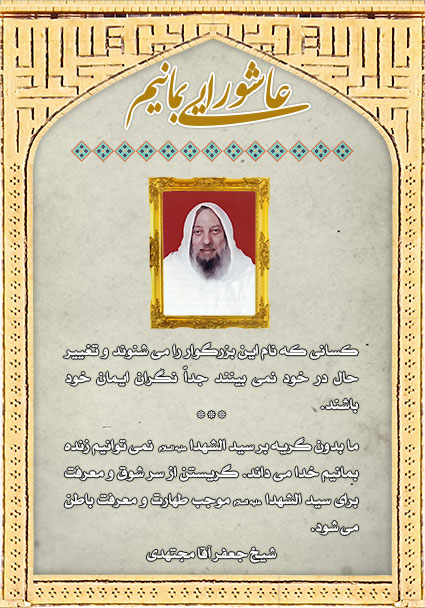 عاشورایی بمانیم
کسانی که نام این بزرگوار را می شنوند و تغییر
حال در خود نمی بینند جداً نگران ایمان خود
باشند.
***
ما بدون گریه بر سید الشهدا علیه السلام نمی توانیم زنده
بمانیم خدا می داند. گریستن از سر شوق و معرفت
برای سید الشهدا علیه السلام موجب طهارت و معرفت باطن
می شود.
شیخ جعفر آقا مجتهدی